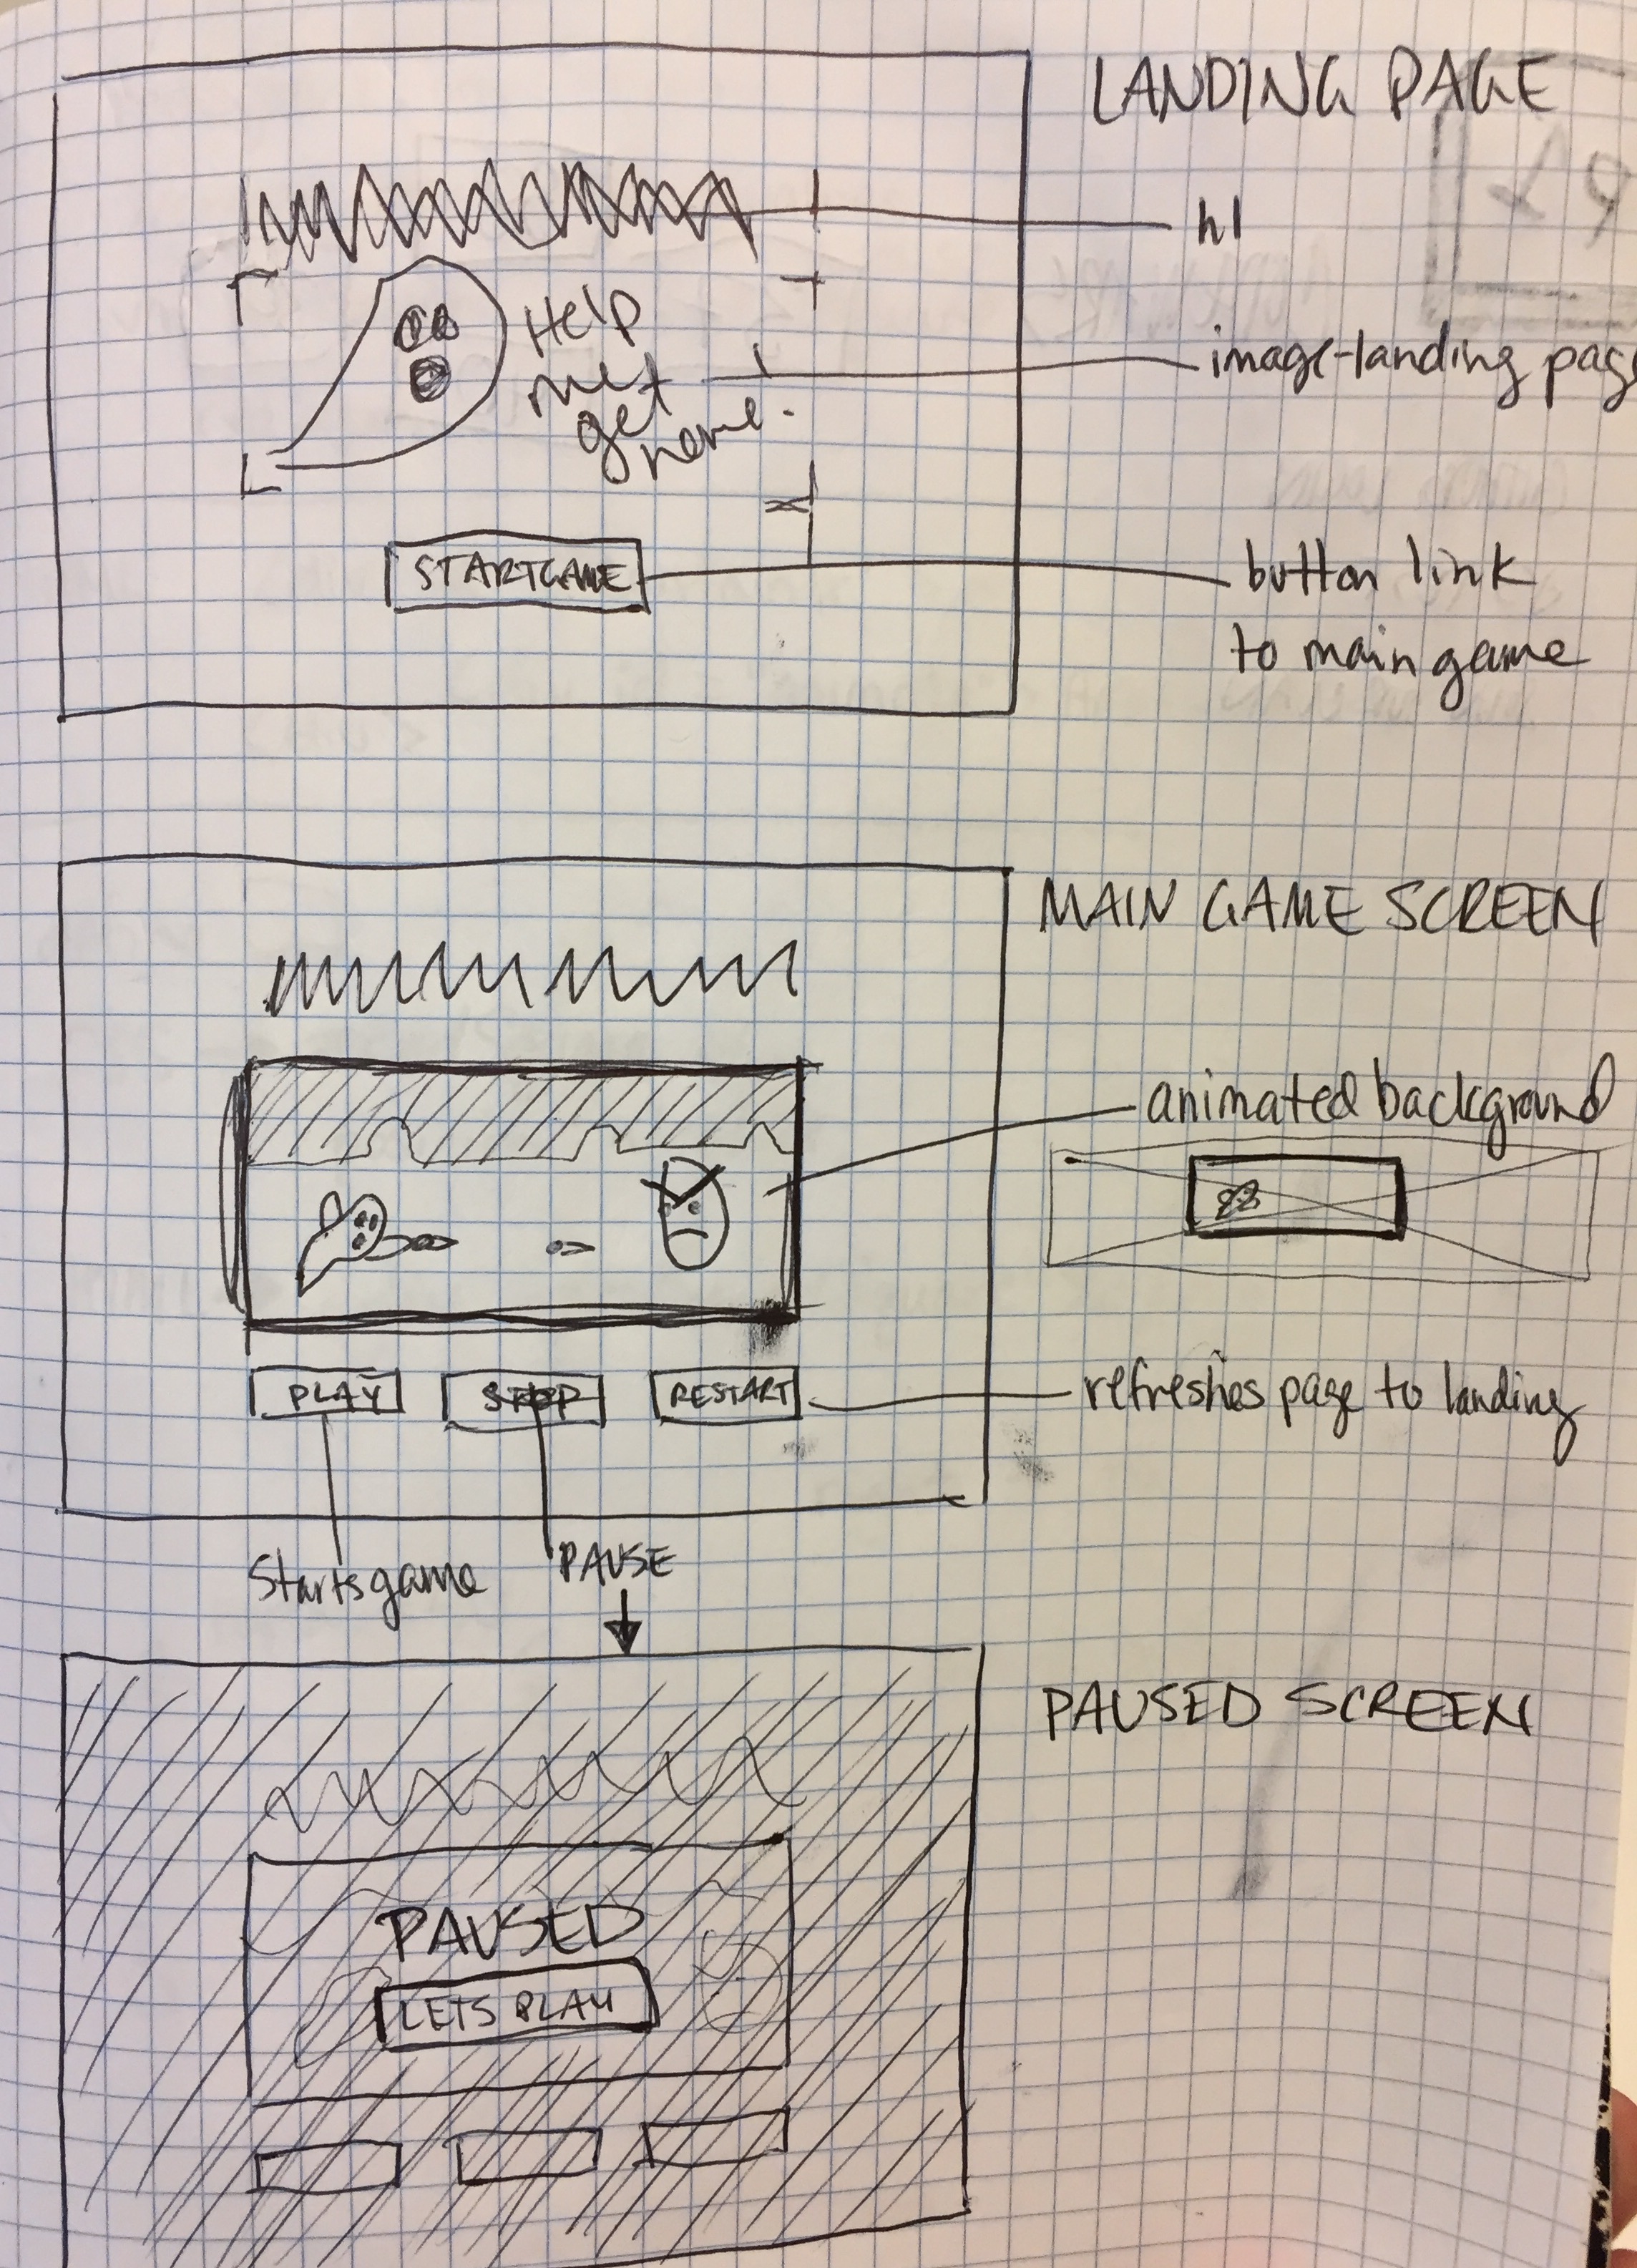 LANDING PAGE
h1
Help
me
get
home.
image-landing page
STARTGAME
button link
to main game
MAIN GAME SCREEN
animated background
PLAY
STOP
RESTART
refreshes page to landing
Starts game
PAUSE
PAUSED SCREEN
PAUSED
LETS PLAY